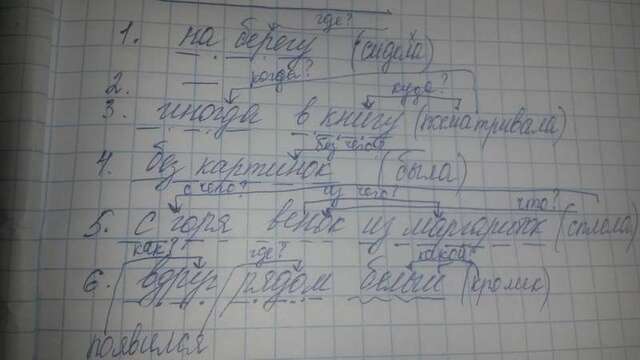 где?
1. на берегу (сидела)
когда? куда?
2. —
3. иногда в книгу (посматривала)
без чего?
4. без картинок (была)
с чего? из чего? что?
5. с горя венок из маргариток (сплела)
как? где? какой?
6. вдруг рядом белый (кролик)
появился